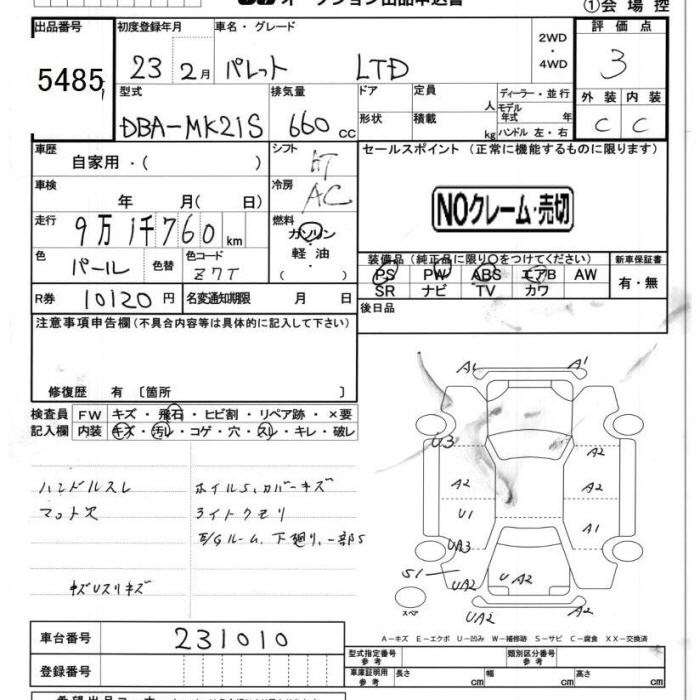 オークション出品申込書
①会場控
出品番号 5485
初度登録年月 23 2月
車名・グレード パレット LTD
2WD・4WD
評価点 3
外装 C 内装 C
型式 DBA-MK21S
排気量 660 cc
ドア 形状
定員 人
積載 kg
ディーラー・並行
モデル年式 年
ハンドル 左・右
車歴 自家用・( )
シフト AT
セールスポイント (正常に機能するものに限ります)
車検 年 月( 日)
冷房 AC
NOクレーム・売切
走行 9万1千760km
燃料 ガソリン・軽油・( )
色 パール 色替 色コード Z7T
装備品(純正品に限り○をつけてください)
PS PW ABS エアB AW
SR ナビ TV カワ
新車保証書 有・無
R券 10120円 名変通知期限 月 日
後日品
注意事項申告欄(不具合内容等は具体的に記入して下さい)
修復歴 有〔箇所 〕
検査員記入欄
FW キズ・飛石・ヒビ割・リペア跡・×要
内装 キズ・汚レ・コゲ・穴・スレ・キレ・破レ
ハンドルスレ
マット欠
キズUスリキズ
ホイルS,カバーキズ
ライトクモリ
E/Gルーム、下廻り、一部S
A1 A1
U3 A2
A2 A2
U1 A1
UA3
S1 UA2 UA2
UA2 A2
スペア
A－キズ E－エクボ U－凹み W－補修跡 S－サビ C－腐食 XX－交換済
車台番号 231010
登録番号
型式指定番号 参考 類別区分番号 参考
車庫証明用 参考 長さ cm 幅 cm 高さ cm